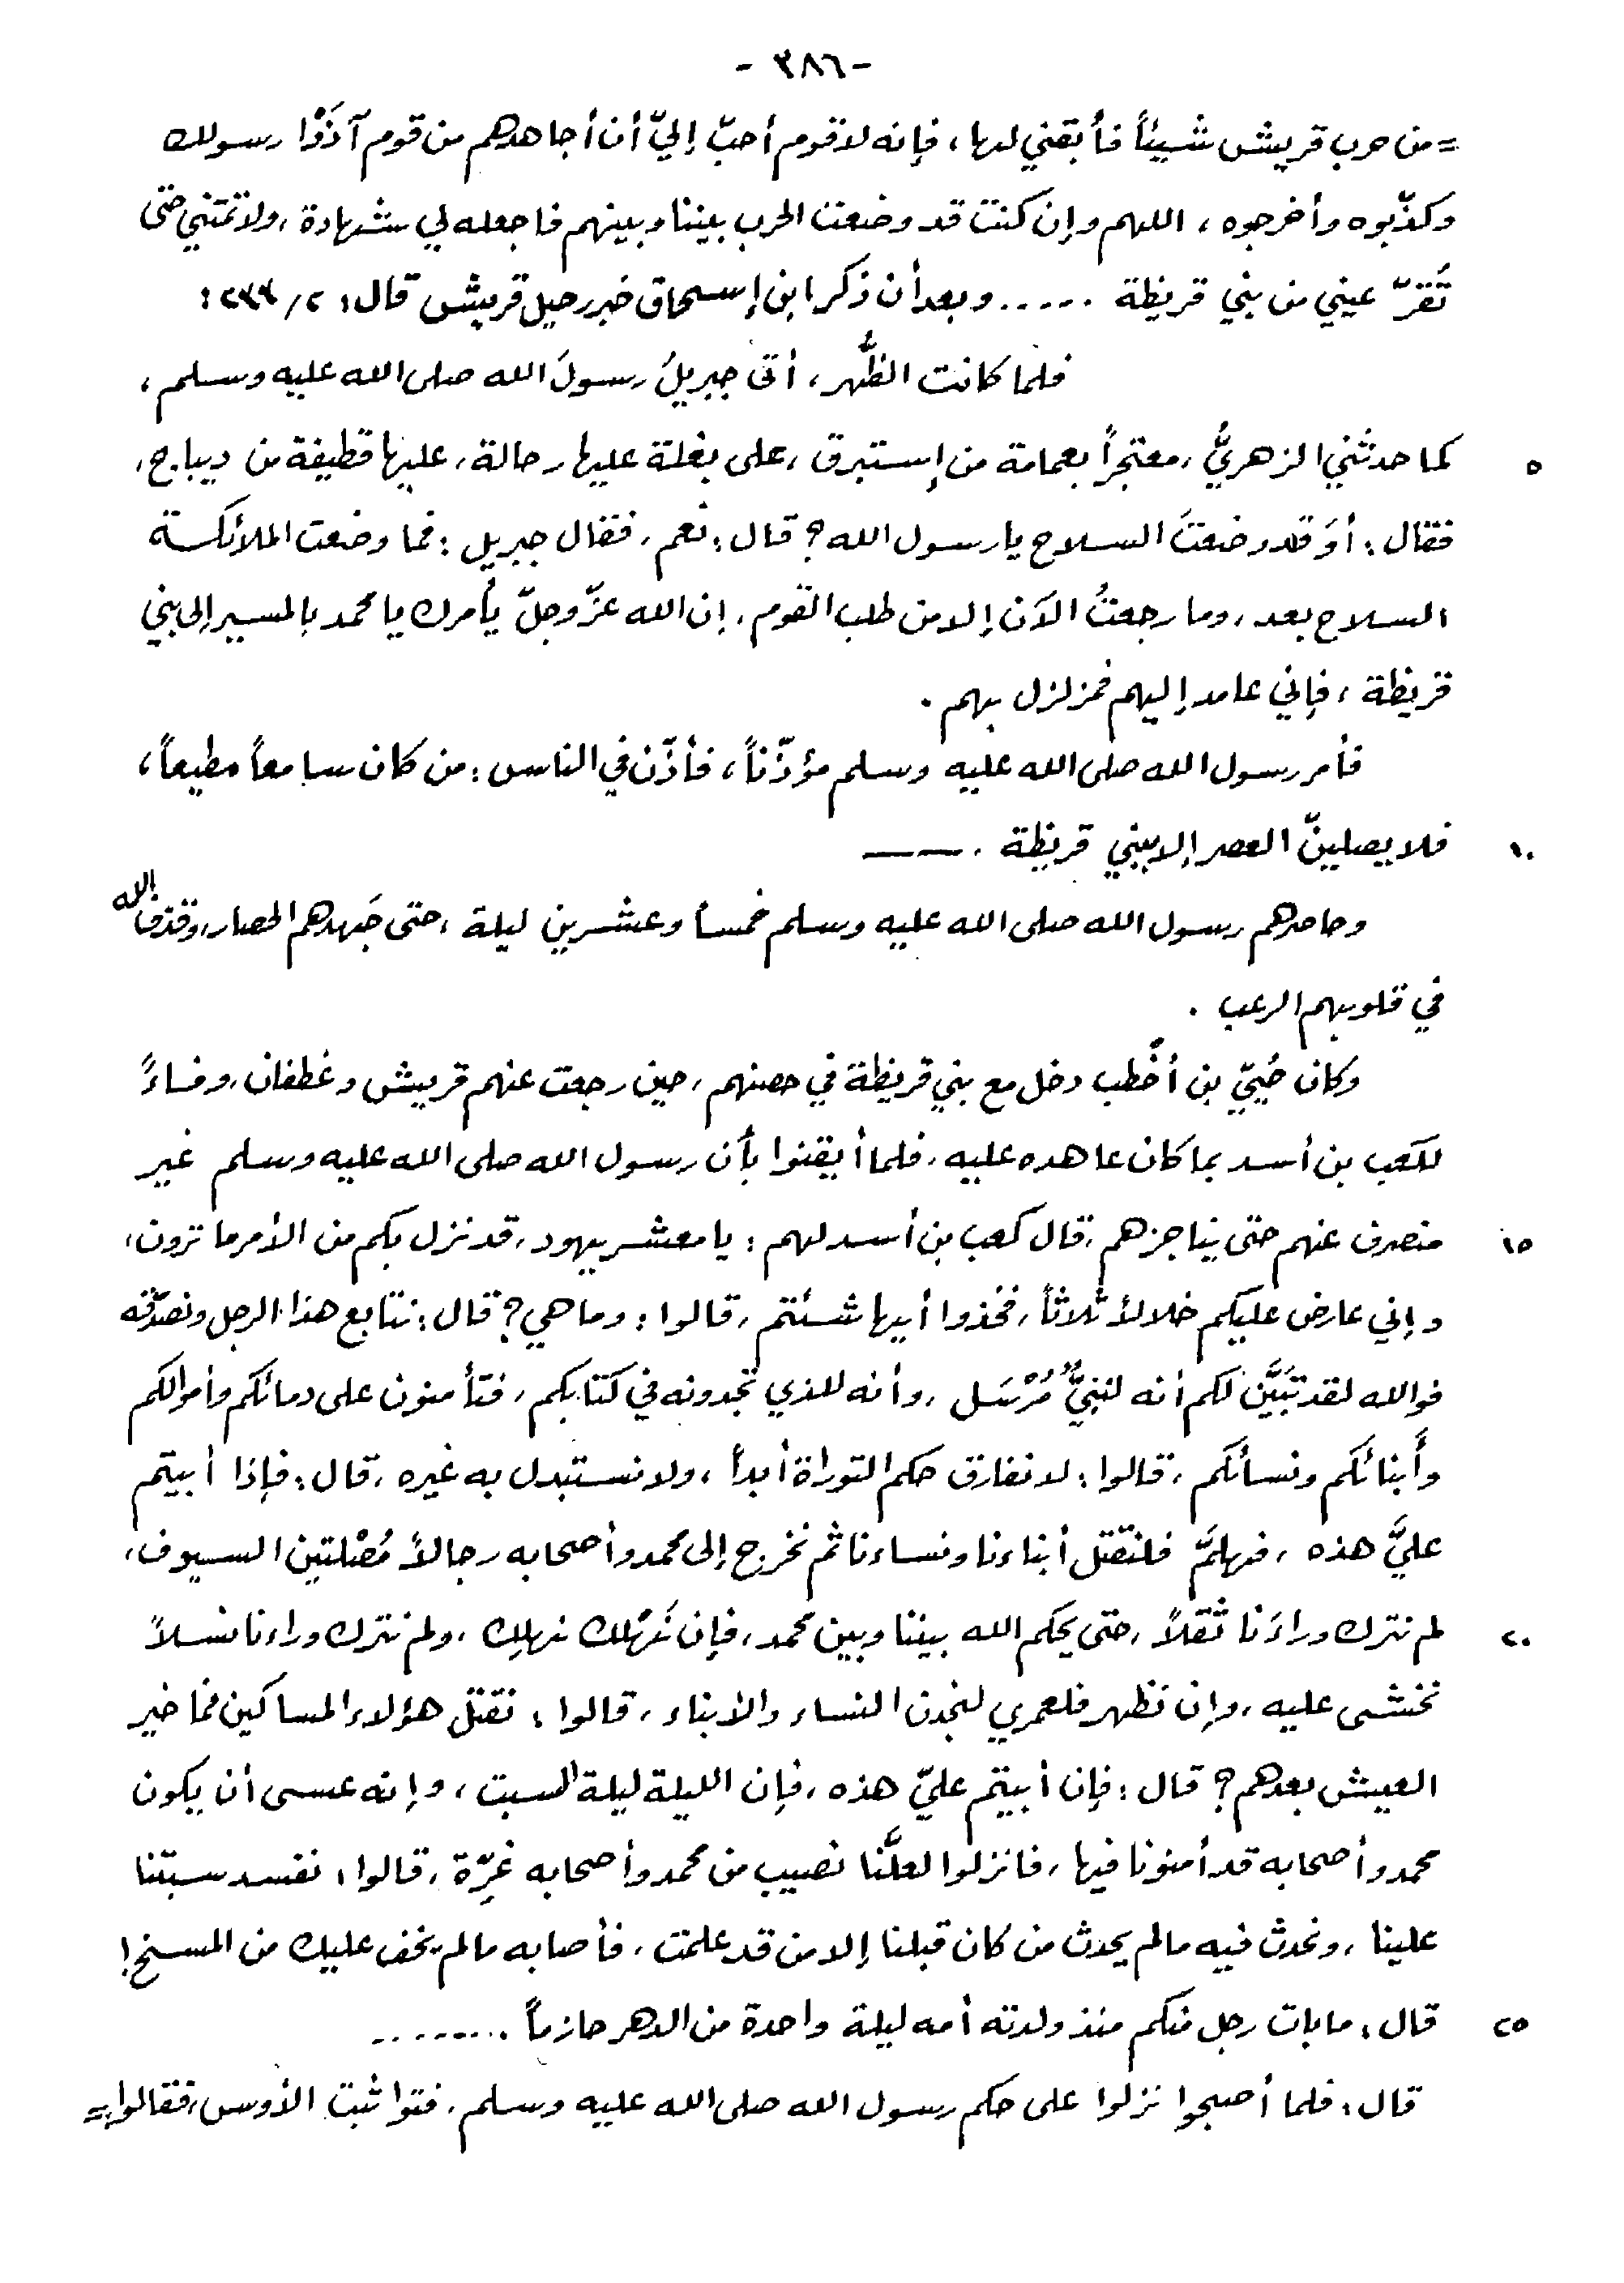 - ٣٨٦ -
= من حرب قريش شيئاً فأبقني لها، فإنه لا قوم أحبّ إليّ أن أجاهدهم من قوم آذَوْا رسولك
وكذّبوه وأخرجوه، اللهم وإن كنت قد وضعت الحرب بيننا وبينهم فاجعله لي شهادة، ولا تمتني حتى
تَقَرّ عيني من بني قريظة ..... وبعد أن ذكر ابن إسحاق خبر رحيل قريش قال: ٢/ ٢٣٣ :
فلما كانت الظُّهر، أتى جبريلُ رسولَ الله صلى الله عليه وسلم،
٥ كما حدثني الزهريُّ، معتجراً بعمامة من إستبرق، على بغلة عليها رحالة، عليها قطيفة من ديباج،
فقال: أوَ قد وضعتَ السلاح يا رسول الله؟ قال: نعم، فقال جبريل: فما وضعت الملائكة
السلاح بعد، وما رجعتُ الآن إلا من طلب القوم، إن الله عزّ وجلّ يأمرك يا محمد بالمسير إلى بني
قريظة، فإني عامد إليهم فمزلزل بهم.
فأمر رسول الله صلى الله عليه وسلم مؤذّناً، فأذّن في الناس: من كان سامعاً مطيعاً،
١٠ فلا يصلينّ العصر إلا ببني قريظة . ـــــ
وحاصرهم رسول الله صلى الله عليه وسلم خمساً وعشرين ليلة، حتى جَهدهم الحصار، وقذف الله
في قلوبهم الرعب .
وكان حُييّ بن أخْطب دخل مع بني قريظة في حصنهم، حين رجعت عنهم قريش وغطفان، وفساءً
لكعب بن أسد بما كان عاهده عليه، فلما أيقنوا بأن رسول الله صلى الله عليه وسلم غير
١٥ منصرف عنهم حتى يناجزهم، قال كعب بن أسد لهم: يا معشر يهود، قد نزل بكم من الأمر ما ترون،
وإني عارض عليكم خلالاً ثلاثاً، فخذوا أيها شئتم، قالوا: وما هي؟ قال: نتابع هذا الرجل ونصدّقه
فوالله لقد تبَيَّن لكم أنه لنبيٌّ مُرْسَل، وأنه للذي تجدونه في كتابكم، فتأمنون على دمائكم وأموالكم
وأَبنائكم ونسائكم، قالوا: لا نفارق حكم التوراة أبداً، ولا نستبدل به غيره، قال: فإذا أبيتم
عليَّ هذه، فهلمَّ فلنقتل أبناءنا ونساءنا ثم نخرج إلى محمد وأصحابه رجالاً مُصْلتين السيوف،
٢٠ لم نترك وراءَنا ثَقَلاً، حتى يحكم الله بيننا وبين محمد، فإن نَهْلك نهلِك، ولم نترك وراءنا نسلاً
نخشى عليه، وإن نظهر فلعمري لنجدن النساء والأبناء، قالوا: نقتل هؤلاء المساكين فما خير
العيش بعدهم؟ قال: فإن أبيتم عليّ هذه، فإن الليلة ليلة السبت، وإنه عسى أن يكون
محمد وأصحابه قد أمنونا فيها، فانزلوا لعلَّنا نصيب من محمد وأصحابه غِرّة، قالوا: نفسد سبتنا
علينا، ونحدث فيه مالم يحدث من كان قبلنا إلا من قد علمت، فأصابه مالم يخف عليك من المسخ!
٢٥ قال: ما بات رجل منكم منذ ولدته أمه ليلة واحدة من الدهر حازماً ........
قال: فلما أصبحوا نزلوا على حكم رسول الله صلى الله عليه وسلم، فتواثبت الأوس، فقالوا: =